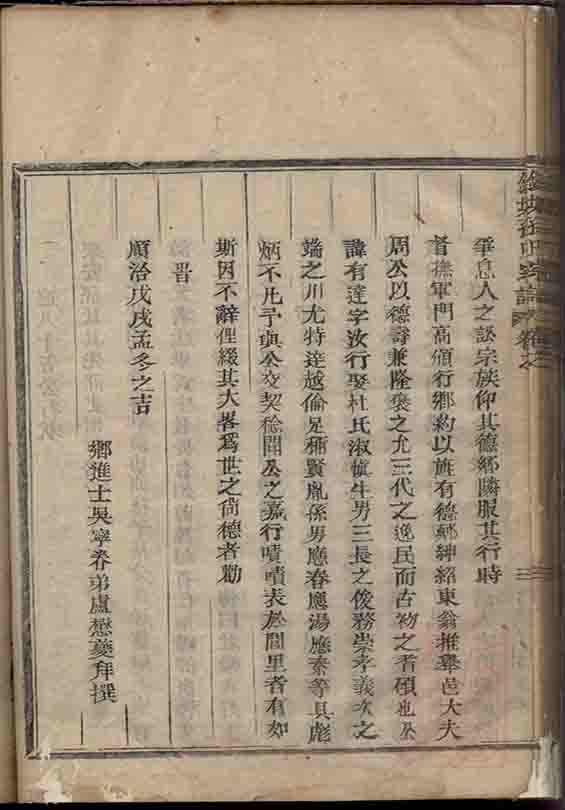 宗譜
筆息人之訟宗族仰其德鄉隣服其行時
督撫軍門高頒行鄉約以旌有德鄉紳紹東翁推舉邑大夫
周公以德壽兼隆褒之允三代之逸民而古物之耆碩也公
諱有達字汝行娶杜氏淑慎生男三長之俊務崇孝義次之
端之川尤特達越倫足稱賢胤孫男應春應湯應泰等具彪
炳不凡予與公交契稔聞公之嘉行嘖嘖表於閭里者有如
斯因不辭俚綴其大畧爲世之尚德者勸
晋
順治戊戌孟冬之吉
鄉進士吳寧眷弟盧懋夔拜撰